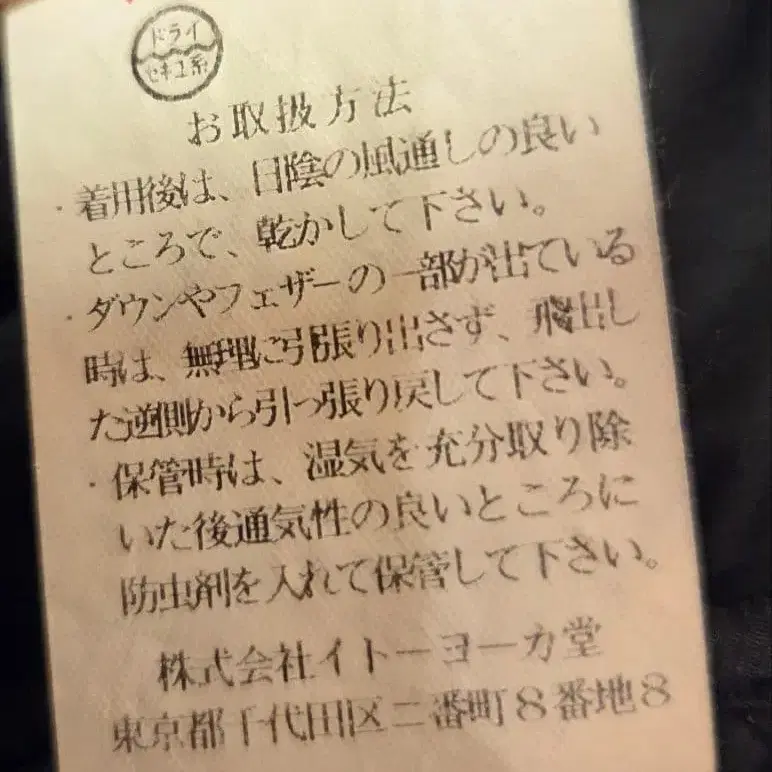 ドライ
セキユ系
お取扱方法
・着用後は、日陰の風通しの良い
ところで、乾かして下さい。
・ダウンやフェザーの一部が出ている
時は、無理に引張り出さず、飛出し
た逆側から引っ張り戻して下さい。
・保管時は、湿気を充分取り除
いた後通気性の良いところに
防虫剤を入れて保管して下さい。
株式会社イトーヨーカ堂
東京都千代田区二番町8番地8